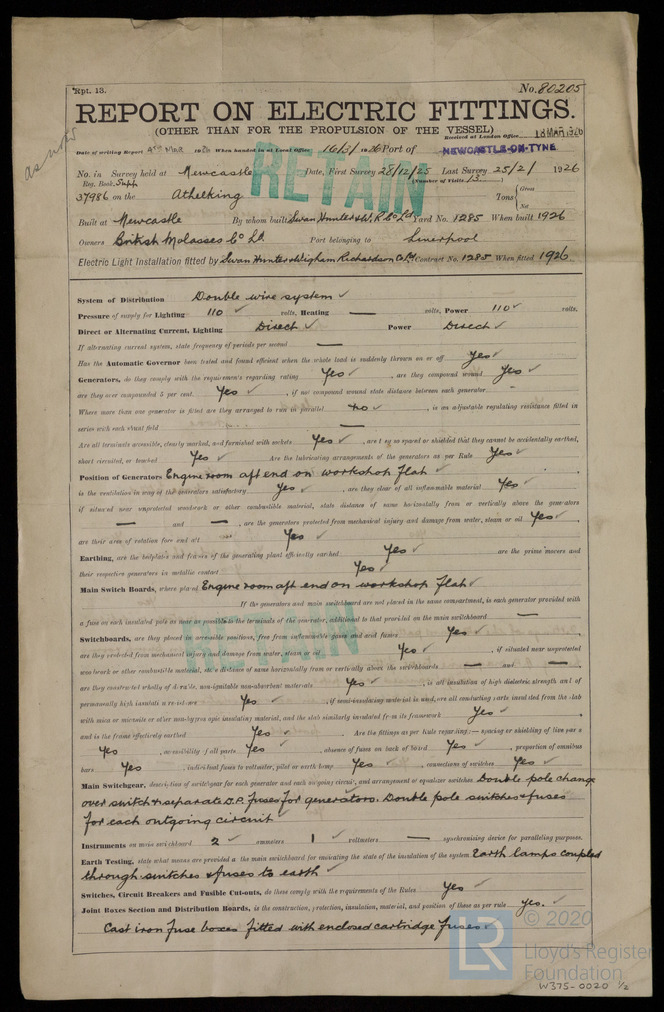 Rpt. 13.
No. 80205
REPORT ON ELECTRIC FITTINGS.
(OTHER THAN FOR THE PROPULSION OF THE VESSEL)
Received at London Office 18 MAR 1926
Date of writing Report 9th Mar 1926 When handed in at Local Office 16/3/1926 Port of NEWCASTLE-ON-TYNE
No. in Survey held at Newcastle Date, First Survey 28/12/25 Last Survey 25/2/1926
Reg. Book. Supp (Number of Visits 13)
37986 on the Athelking Tons { Gross
Net
Built at Newcastle By whom built Swan Hunter & W. R. Co Ld Yard No. 1285 When built 1926
Owners British Molasses Co Ld Port belonging to Liverpool
Electric Light Installation fitted by Swan Hunter & Wigham Richardson Co Ld Contract No. 1285 When fitted 1926
RETAIN
System of Distribution Double wire system ✓
Pressure of supply for Lighting 110 ✓ volts, Heating — volts, Power 110 ✓ volts.
Direct or Alternating Current, Lighting Direct ✓ Power Direct ✓
If alternating current system, state frequency of periods per second —
Has the Automatic Governor been tested and found efficient when the whole load is suddenly thrown on or off Yes ✓
Generators, do they comply with the requirements regarding rating Yes ✓, are they compound wound Yes ✓
are they over compounded 5 per cent. Yes ✓, if not compound wound state distance between each generator -
Where more than one generator is fitted are they arranged to run in parallel No ✓, is an adjustable regulating resistance fitted in
series with each shunt field —
Are all terminals accessible, clearly marked, and furnished with sockets Yes ✓, are they so spaced or shielded that they cannot be accidentally earthed,
short circuited, or touched Yes ✓ Are the lubricating arrangements of the generators as per Rule Yes ✓
Position of Generators Engine room aft end on workshop flat ✓
is the ventilation in way of the generators satisfactory Yes ✓, are they clear of all inflammable material Yes ✓
if situated near unprotected woodwork or other combustible material, state distance of same horizontally from or vertically above the generators
— and —, are the generators protected from mechanical injury and damage from water, steam or oil Yes ✓
are their axes of rotation fore and aft Yes ✓
Earthing, are the bedplates and frames of the generating plant efficiently earthed Yes ✓ are the prime movers and
their respective generators in metallic contact Yes ✓
Main Switch Boards, where placed Engine room aft end on workshop flat ✓
If the generators and main switchboard are not placed in the same compartment, is each generator provided with
a fuse on each insulated pole as near as possible to the terminals of the generator, additional to that provided on the main switchboard —
Switchboards, are they placed in accessible positions, free from inflammable gases and acid fumes Yes ✓
are they protected from mechanical injury and damage from water, steam or oil Yes ✓, if situated near unprotected
woodwork or other combustible material, state distance of same horizontally from or vertically above the switchboards — and —
RETAIN
are they constructed wholly of durable, non-ignitable non-absorbent materials Yes ✓, is all insulation of high dielectric strength and of
permanently high insulation resistance Yes ✓, if semi-insulating material is used, are all conducting parts insulated from the slab
with mica or micanite or other non-hygroscopic insulating material, and the slab similarly insulated from its framework Yes ✓
and is the frame effectively earthed Yes ✓ Are the fittings as per Rule regarding:— spacing or shielding of live parts
Yes ✓, accessibility of all parts Yes ✓, absence of fuses on back of board Yes ✓, proportion of omnibus
bars Yes ✓, individual fuses to voltmeter, pilot or earth lamp Yes ✓, connections of switches Yes ✓
Main Switchgear, description of switchgear for each generator and each outgoing circuit, and arrangement of equalizer switches Double pole change
over switch & separate D.P. fuses for generators. Double pole switches & fuses
for each outgoing circuit ✓
Instruments on main switchboard 2 ✓ ammeters 1 ✓ voltmeters — synchronising device for paralleling purposes.
Earth Testing, state what means are provided at the main switchboard for indicating the state of the insulation of the system Earth lamps coupled
through switches & fuses to earth ✓
Switches, Circuit Breakers and Fusible Cut-outs, do these comply with the requirements of the Rules Yes ✓
Joint Boxes Section and Distribution Boards, is the construction, protection, insulation, material, and position of these as per rule Yes. ✓
Cast iron fuse boxes fitted with enclosed cartridge fuses ✓
LR
© 2020
Lloyd's Register
Foundation
W375-0020 1/2